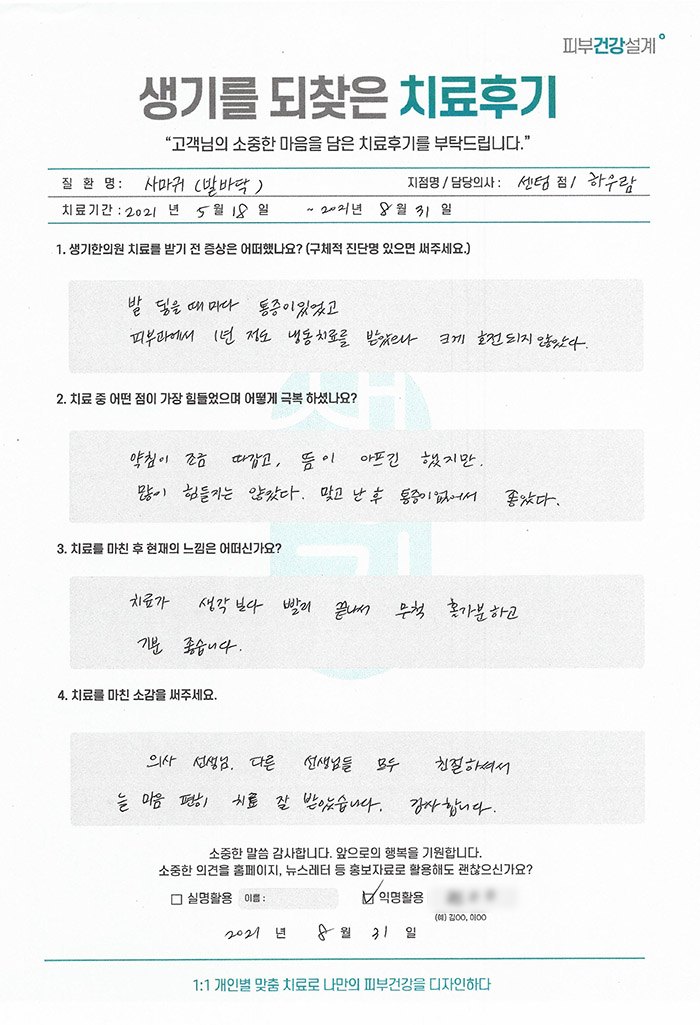 피부건강설계
생기를 되찾은 치료후기
“고객님의 소중한 마음을 담은 치료후기를 부탁드립니다.”
질 환 명 : 사마귀 (발바닥) 지점명 / 담당의사 : 센텀 점 / 하우람
치료기간 : 2021 년 5 월 18 일 ~ 2021 년 8 월 31 일
1. 생기한의원 치료를 받기 전 증상은 어떠했나요? (구체적 진단명 있으면 써주세요.)
발 딛을 때 마다 통증이 있었고
피부과에서 1년 정도 냉동치료를 받았으나 크게 호전되지 않았다.
2. 치료 중 어떤 점이 가장 힘들었으며 어떻게 극복 하셨나요?
약침이 조금 따갑고, 뜸이 아프긴 했지만.
많이 힘들지는 않았다. 맞고 난 후 통증이 없어서 좋았다.
3. 치료를 마친 후 현재의 느낌은 어떠신가요?
치료가 생각보다 빨리 끝나서 무척 홀가분하고
기분 좋습니다.
4. 치료를 마친 소감을 써주세요.
의사 선생님, 다른 선생님들 모두 친절하셔서
늘 마음 편히 치료 잘 받았습니다. 감사합니다.
소중한 말씀 감사합니다. 앞으로의 행복을 기원합니다.
소중한 의견을 홈페이지, 뉴스레터 등 홍보자료로 활용해도 괜찮으신가요?
실명활용 이름 : 익명활용
(예) 김OO, 이OO
2021 년 8 월 31 일
1:1 개인별 맞춤 치료로 나만의 피부건강을 디자인하다